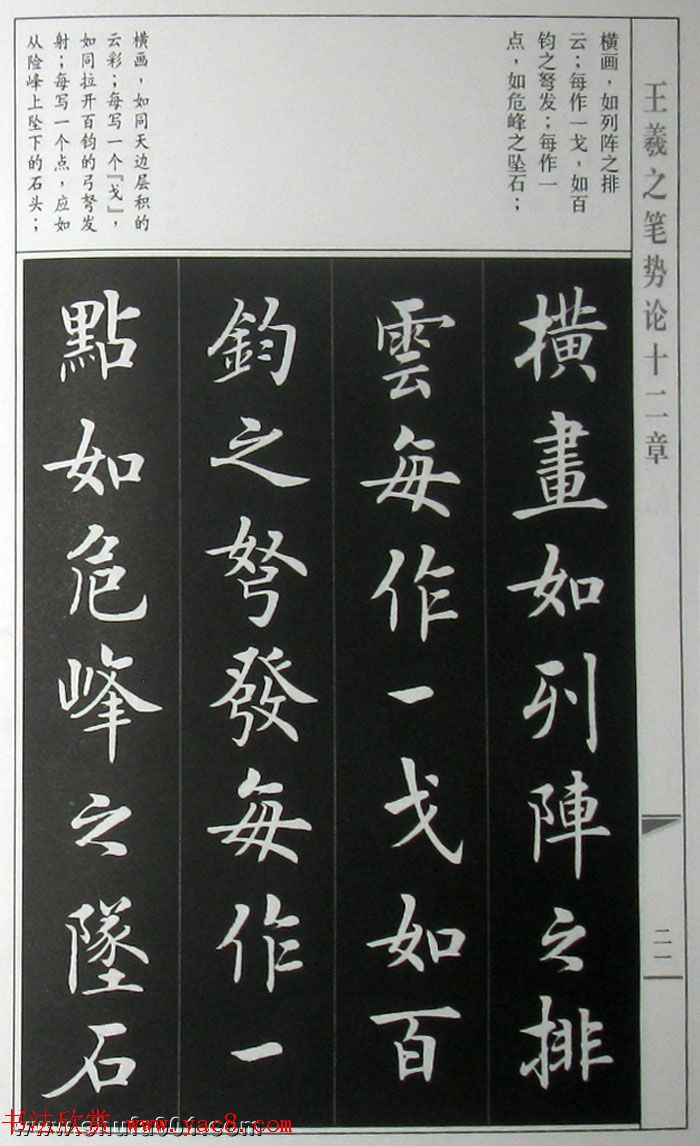 王羲之笔势论十二章
横画，如列阵之排
云；每作一戈，如百
钧之弩发；每作一
点，如危峰之坠石；
横画，如同天边层积的
云彩；每写一个『戈』，
如同拉开百钧的弓弩发
射；每写一个点，应如
从险峰上坠下的石头；
橫畫如列陣之排
雲每作一戈如百
鈞之弩發每作一
點如危峰之墜石
二一
书法欣赏 www.yac8.com